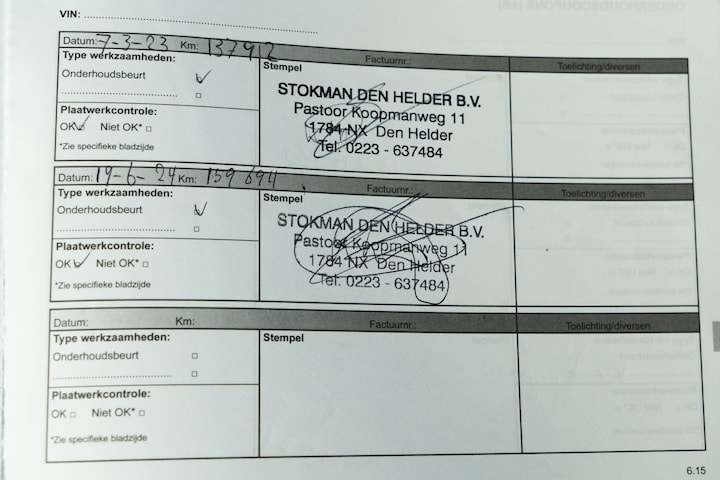 VIN: ........................................................................
Datum: 7-3-23 Km: 137912 Factuurnr.: Toelichting/diversen
Type werkzaamheden:
Onderhoudsbeurt
........................................
Plaatwerkcontrole:
OK Niet OK*
*Zie specifieke bladzijde
Stempel
STOKMAN DEN HELDER B.V.
Pastoor Koopmanweg 11
1784 NX Den Helder
Tel. 0223 - 637484
Datum: 19-6-24 Km: 159694 Factuurnr.: Toelichting/diversen
Type werkzaamheden:
Onderhoudsbeurt
........................................
Plaatwerkcontrole:
OK Niet OK*
*Zie specifieke bladzijde
Stempel
STOKMAN DEN HELDER B.V.
Pastoor Koopmanweg 11
1784 NX Den Helder
Tel. 0223 - 637484
Datum: Km: Factuurnr.: Toelichting/diversen
Type werkzaamheden:
Onderhoudsbeurt
........................................
Plaatwerkcontrole:
OK Niet OK*
*Zie specifieke bladzijde
Stempel
6.15